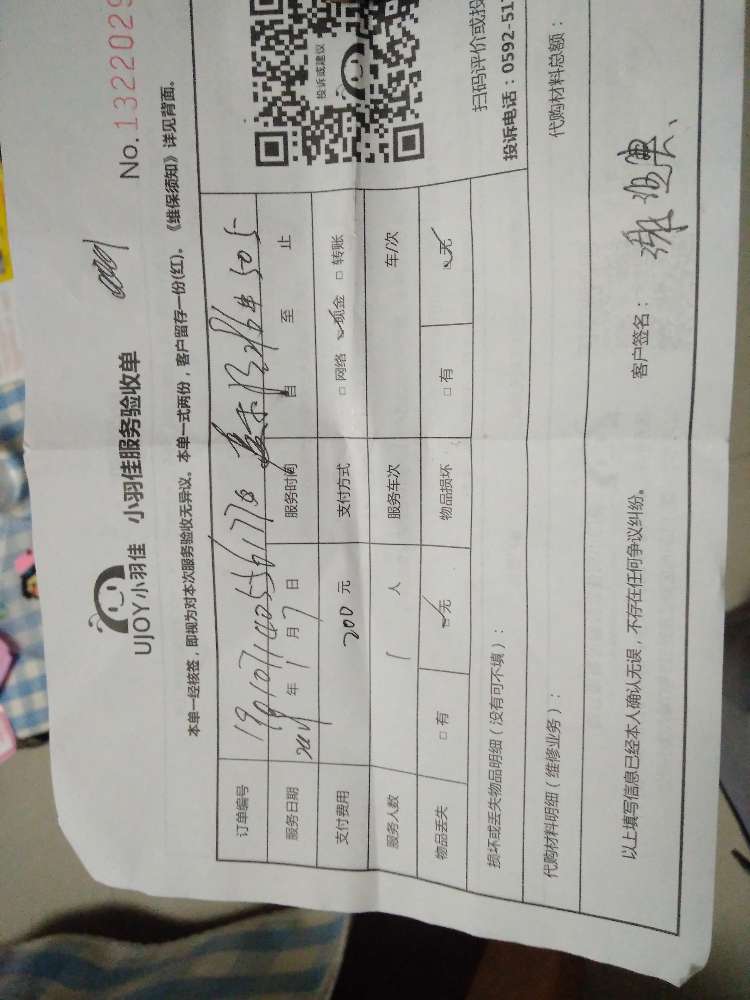 UJOY小羽佳 小羽佳服务验收单
No.1322029
本单一经核签，即视为对本次服务验收无异议。本单一式两份，客户留存一份(红)。《维保须知》详见背面。
订单编号
服务日期 年 1 月 7 日 服务时间 自 至 止
支付费用 200 元 支付方式 □ 网络 ☑ 现金 □ 转账
服务人数 1 人 服务车次 车/次
物品丢失 □ 有 ☑ 无 物品损坏 □ 有 ☑ 无
投诉或建议
扫码评价或投
投诉电话：0592-517
损坏或丢失物品明细（没有可不填）：
代购材料明细（维修业务）： 代购材料总额：
以上填写信息已经本人确认无误，不存在任何争议纠纷。 客户签名：